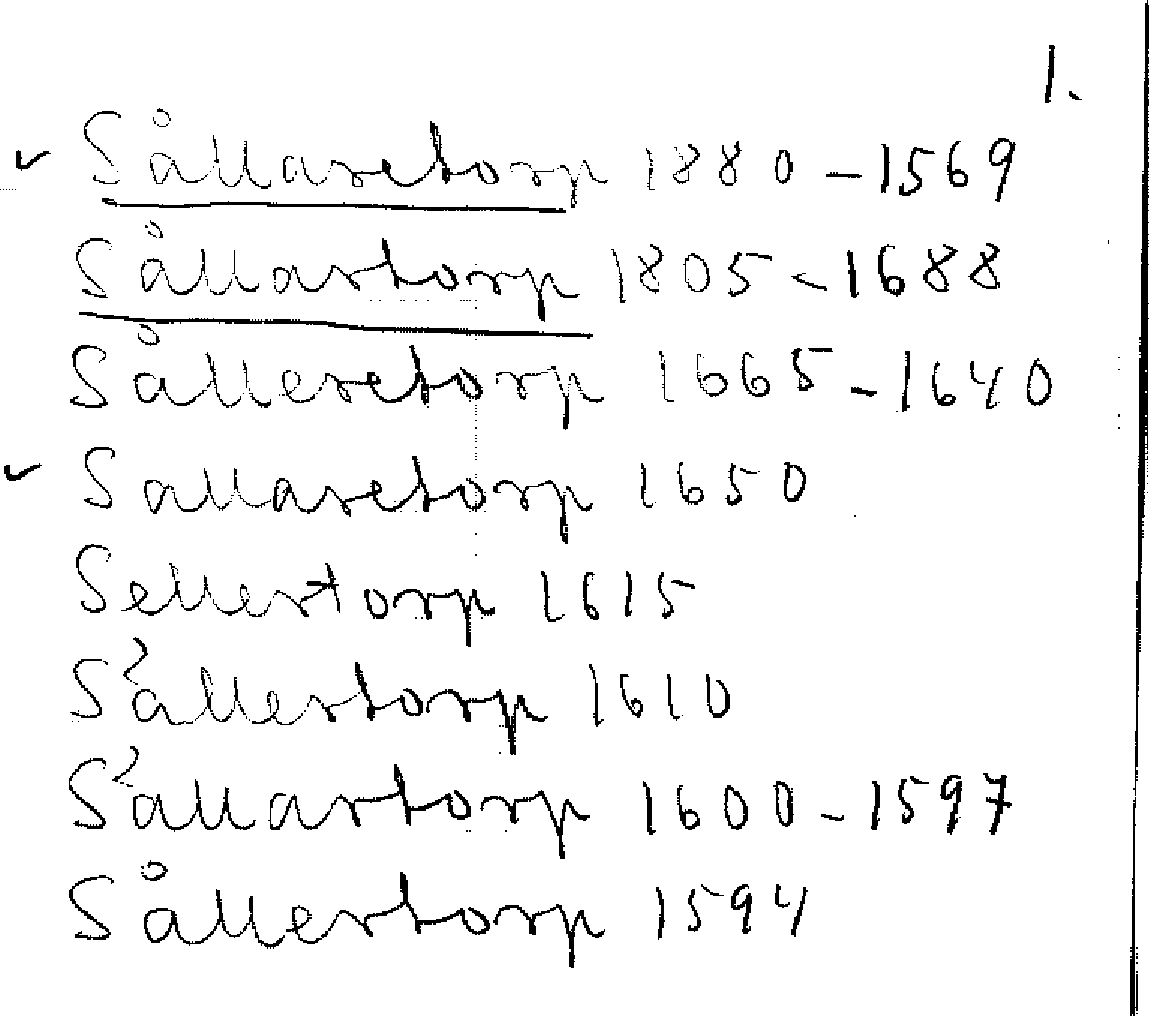 1.
✓ Sållaretorp 1880-1569
Sållartorp 1805-1688
Ålleretorp 1665-1640
✓ Sallaretorp 1650
Sellertorp 1615
Sållertorp 1610
Sållartorp 1600-1597
Sållertorp 1594